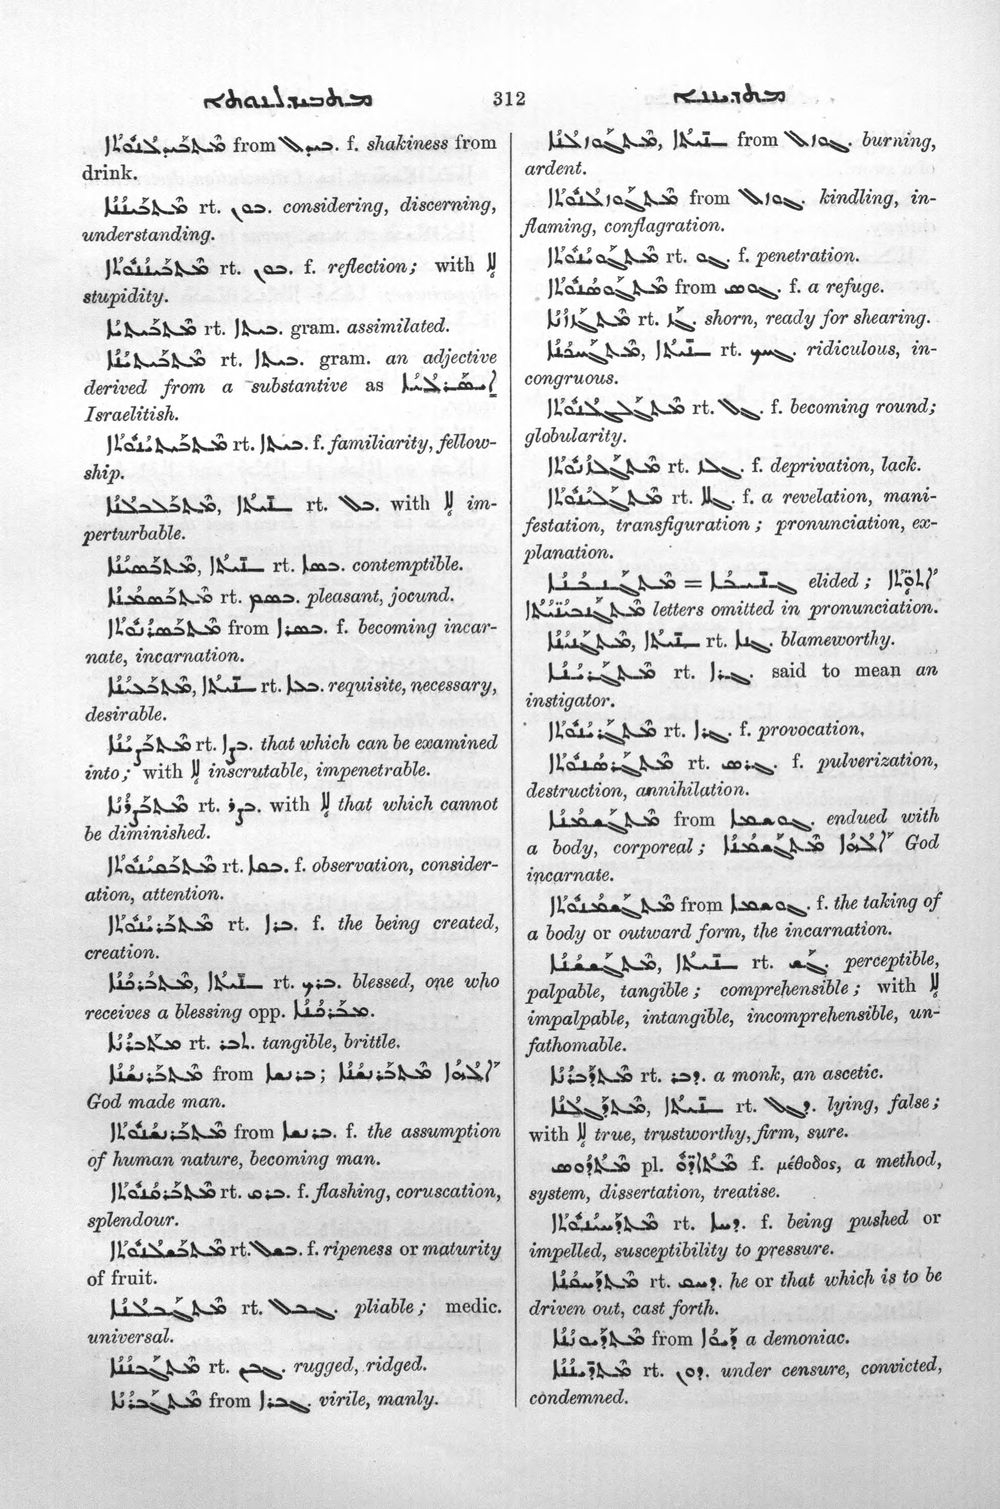 ܡܬܒܝܕܠܢܘܬܐ 312 ܡܬܕܝܢܢܐ
from f. shakiness from
drink.
ܡܬܒܝܢܢܐ rt. ܒܘܢ. considering, discerning,
understanding.
ܡܬܒܝܢܢܘܬܐ rt. ܒܘܢ. f. reflection; with ܠܐ
stupidity.
ܡܬܒܝܬܝܐ rt. ܒܝܬܐ. gram. assimilated.
ܡܬܒܝܬܝܢܐ rt. ܒܝܬܐ. gram. an adjective
derived from a substantive as ܐܝܣܪܠܝܐ
Israelitish.
ܡܬܒܝܬܝܢܘܬܐ rt. ܒܝܬܐ. f. familiarity, fellow-
ship.
ܡܬܒܠܒܠܢܐ, ܢܝܬܐ— rt. ܒܠ. with ܠܐ im-
perturbable.
ܡܬܒܣܝܢܐ, ܢܝܬܐ— rt. ܒܣܐ. contemptible.
ܡܬܒܣܡܢܐ rt. ܒܣܡ. pleasant, jocund.
ܡܬܒܣܪܢܘܬܐ from ܒܣܪܐ. f. becoming incar-
nate, incarnation.
ܡܬܒܥܝܢܐ, ܢܝܬܐ— rt. ܒܥܐ. requisite, necessary,
desirable.
ܡܬܒܨܝܢܐ rt. ܒܨܐ. that which can be examined
into; with ܠܐ inscrutable, impenetrable.
ܡܬܒܨܪܢܐ rt. ܒܨܪ. with ܠܐ that which cannot
be diminished.
ܡܬܒܩܝܢܘܬܐ rt. ܒܩܐ. f. observation, consider-
ation, attention.
ܡܬܒܪܝܢܘܬܐ rt. ܒܪܐ. f. the being created,
creation.
ܡܬܒܪܟܢܐ, ܢܝܬܐ— rt. ܒܪܟ. blessed, one who
receives a blessing opp. ܡܒܪܟܢܐ.
ܡܬܒܪܢܐ rt. ܬܒܪ. tangible, brittle.
ܡܬܒܪܢܫܢܐ from ܒܪܢܫܐ; ܐܠܗܐ ܡܬܒܪܢܫܢܐ
God made man.
ܡܬܒܪܢܫܢܘܬܐ from ܒܪܢܫܐ. f. the assumption
of human nature, becoming man.
ܡܬܒܪܩܢܘܬܐ rt. ܒܪܩ. f. flashing, coruscation,
splendour.
ܡܬܒܫܠܢܘܬܐ rt. ܒܫܠ. f. ripeness or maturity
of fruit.
ܡܬܓܒܠܢܐ rt. ܓܒܠ. pliable; medic.
universal.
ܡܬܓܒܢܢܐ rt. ܓܒܢ. rugged, ridged.
ܡܬܓܒܪܢܐ from ܓܒܪܐ. virile, manly.
ܡܬܓܘܙܠܢܐ, ܢܝܬܐ— from ܓܘܙܠ. burning,
ardent.
ܡܬܓܘܙܠܢܘܬܐ from ܓܘܙܠ. kindling, in-
flaming, conflagration.
ܡܬܓܘܝܢܘܬܐ rt. ܓܘ. f. penetration.
ܡܬܓܘܣܢܘܬܐ from ܓܘܣ. f. a refuge.
ܡܬܓܙܙܢܐ rt. ܓܙ. shorn, ready for shearing.
ܡܬܓܚܟܢܐ, ܢܝܬܐ— rt. ܓܚܟ. ridiculous, in-
congruous.
ܡܬܓܠܓܠܢܘܬܐ rt. ܓܠ. f. becoming round;
globularity.
ܡܬܓܠܙܢܘܬܐ rt. ܓܠܙ. f. deprivation, lack.
ܡܬܓܠܝܢܘܬܐ rt. ܓܠܐ. f. a revelation, mani-
festation, transfiguration; pronunciation, ex-
planation.
ܡܬܓܢܒܢܐ = ܓܢܝܒܐ elided; ܐܬܘܬܐ
ܡܬܓܢܒܢܝܬܐ letters omitted in pronunciation.
ܡܬܓܢܝܢܐ, ܢܝܬܐ— rt. ܓܢܐ. blameworthy.
ܡܬܓܪܝܢܐ rt. ܓܪܐ. said to mean an
instigator.
ܡܬܓܪܝܢܘܬܐ rt. ܓܪܐ. f. provocation,
ܡܬܓܪܣܢܘܬܐ rt. ܓܪܣ. f. pulverization,
destruction, annihilation.
ܡܬܓܫܡܢܐ from ܓܘܫܡܐ. endued with
a body, corporeal; ܐܠܗܐ ܡܬܓܫܡܢܐ God
incarnate.
ܡܬܓܫܡܢܘܬܐ from ܓܘܫܡܐ. f. the taking of
a body or outward form, the incarnation.
ܡܬܓܫܫܢܐ, ܢܝܬܐ— rt. ܓܫ. perceptible,
palpable, tangible; comprehensible; with ܠܐ
impalpable, intangible, incomprehensible, un-
fathomable.
ܡܬܕܒܪܢܐ rt. ܕܒܪ. a monk, an ascetic.
ܡܬܕܓܠܢܐ, ܢܝܬܐ— rt. ܕܓܠ. lying, false;
with ܠܐ true, trustworthy, firm, sure.
ܡܬܕܘܣ pl. ܡܬܐܕܘ f. μέθοδος, a method,
system, dissertation, treatise.
ܡܬܕܚܝܢܘܬܐ rt. ܕܚܐ. f. being pushed or
impelled, susceptibility to pressure.
ܡܬܕܚܩܢܐ rt. ܕܚܩ. he or that which is to be
driven out, cast forth.
ܡܬܕܝܘܢܐ from ܕܝܘܐ a demoniac.
ܡܬܕܝܢܢܐ rt. ܕܘܢ. under censure, convicted,
condemned.